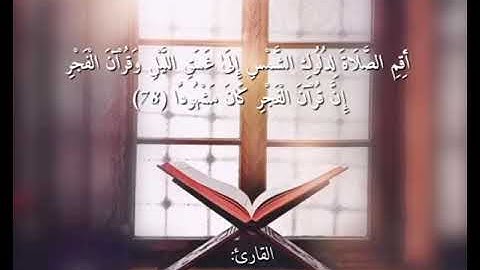 أَقِمِ الصَّلَاةَ لِدُلُوكِ الشَّمْسِ إِلَىٰ غَسَقِ اللَّيْلِ وَقُرْآنَ الْفَجْرِ
إِنَّ قُرْآنَ الْفَجْرِ كَانَ مَشْهُودًا (78)
القارئ: